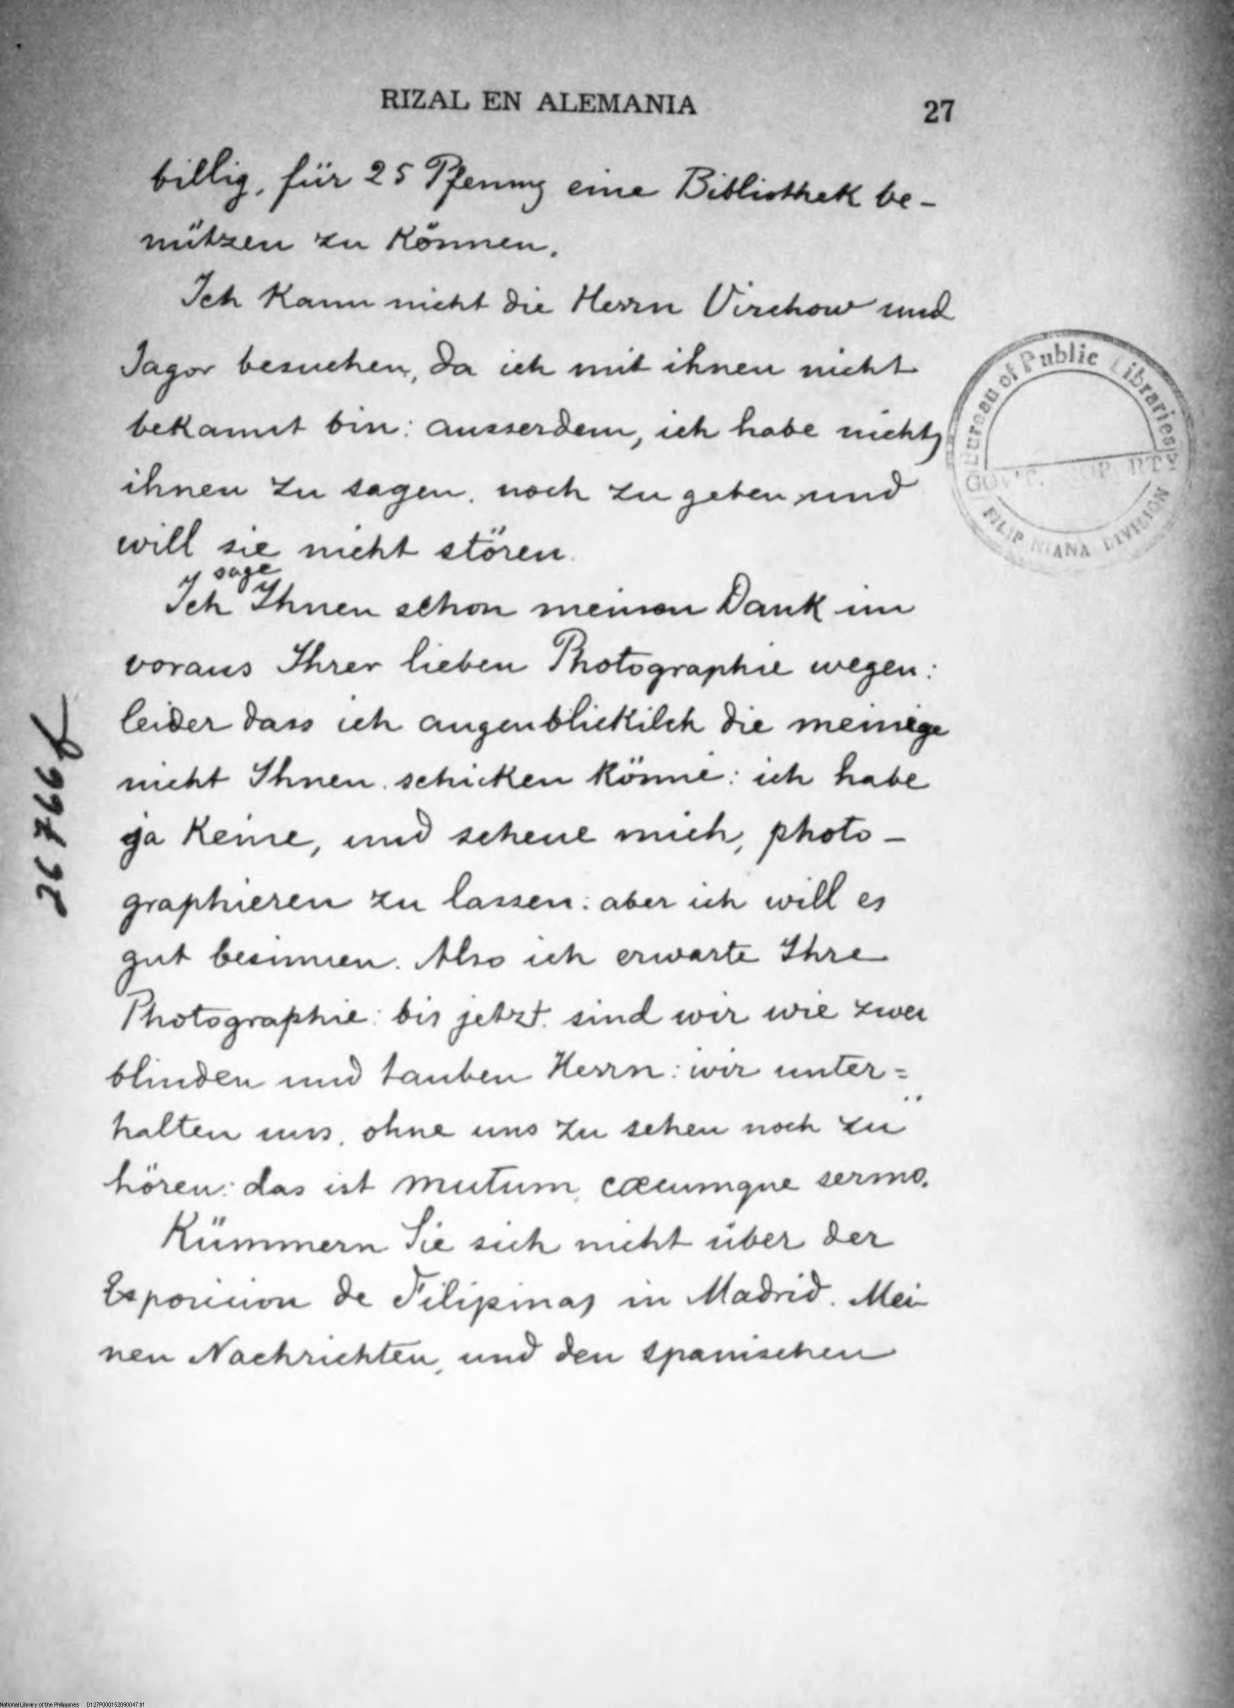 RIZAL EN ALEMANIA 27
billig, für 25 Pfennig eine Bibliothek be-
nützen zu können.
Ich kann nicht die Herrn Virchow und
Jagor besuchen, da ich mit ihnen nicht
bekannt bin: ausserdem, ich habe nichts
ihnen zu sagen, noch zu geben und
will sie nicht stören.
sage
Ich Ihnen schon meinen Dank im
voraus Ihrer lieben Photographie wegen:
leider dass ich augenblickilch die meinige
nicht Ihnen schicken könne: ich habe
ja keine, und scheue mich, photo-
graphieren zu lassen: aber ich will es
gut besinnen. Also ich erwarte Ihre
Photographie: bis jetzt sind wir wie zwei
blinden und tauben Herrn: wir unter=
halten uns, ohne uns zu sehen noch zu
hören: das ist mutum, cæcumque sermo.
Kümmern Sie sich nicht über der
Exposicion de Filipinas in Madrid. Mei-
nen Nachrichten, und den spanischen
26766f
Bureau of Public Libraries
GOV'T. PROPERTY
FILIPINIANA DIVISION
National Library of the Philippines D127P000153090047.tif